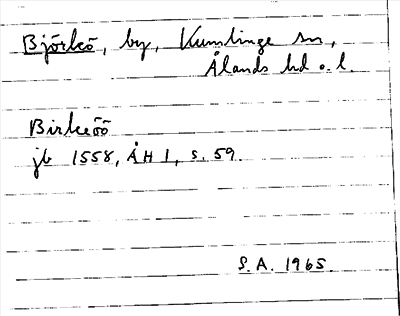 Björkö, by, Kumlinge sn,
Ålands hd o. l.
Birkeöö
jb 1558, ÅH 1, s. 59.
S.A. 1965.